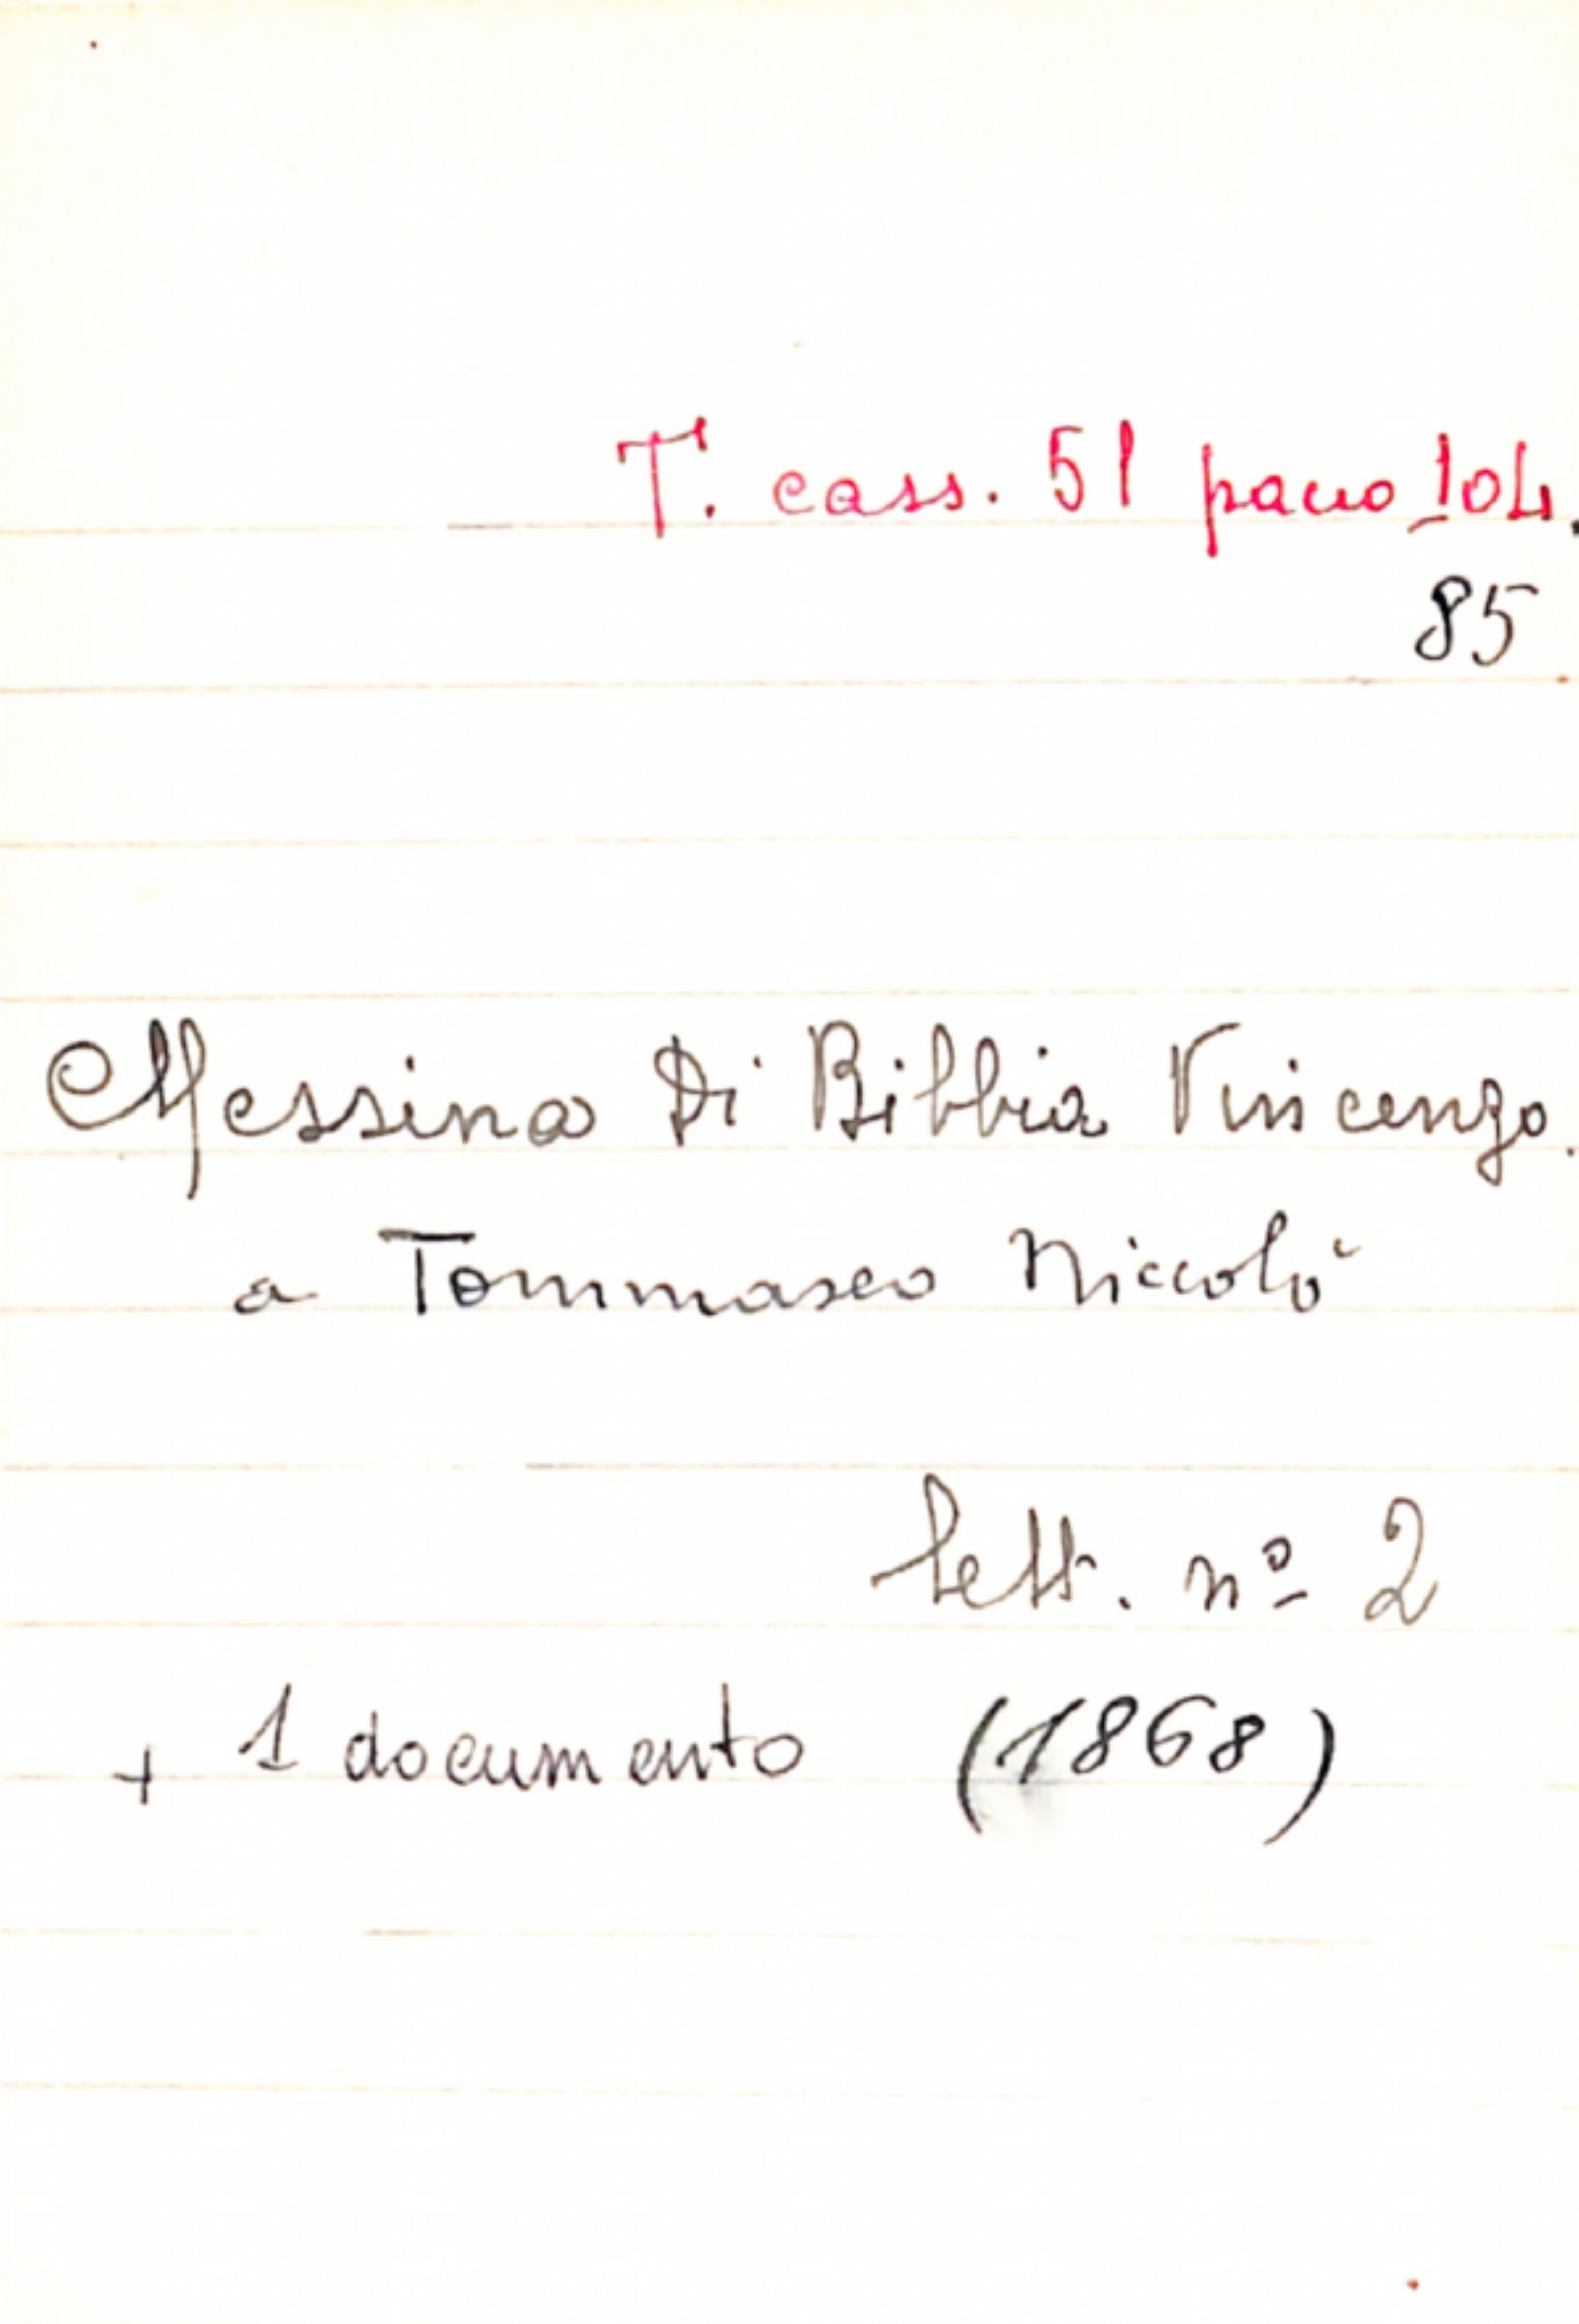 T. cass. 51 pacco 104.
85
Messina Di Bibbia Vincenzo.
a Tommaseo Niccolò
Lett. nº 2
+ 1 documento (1868)